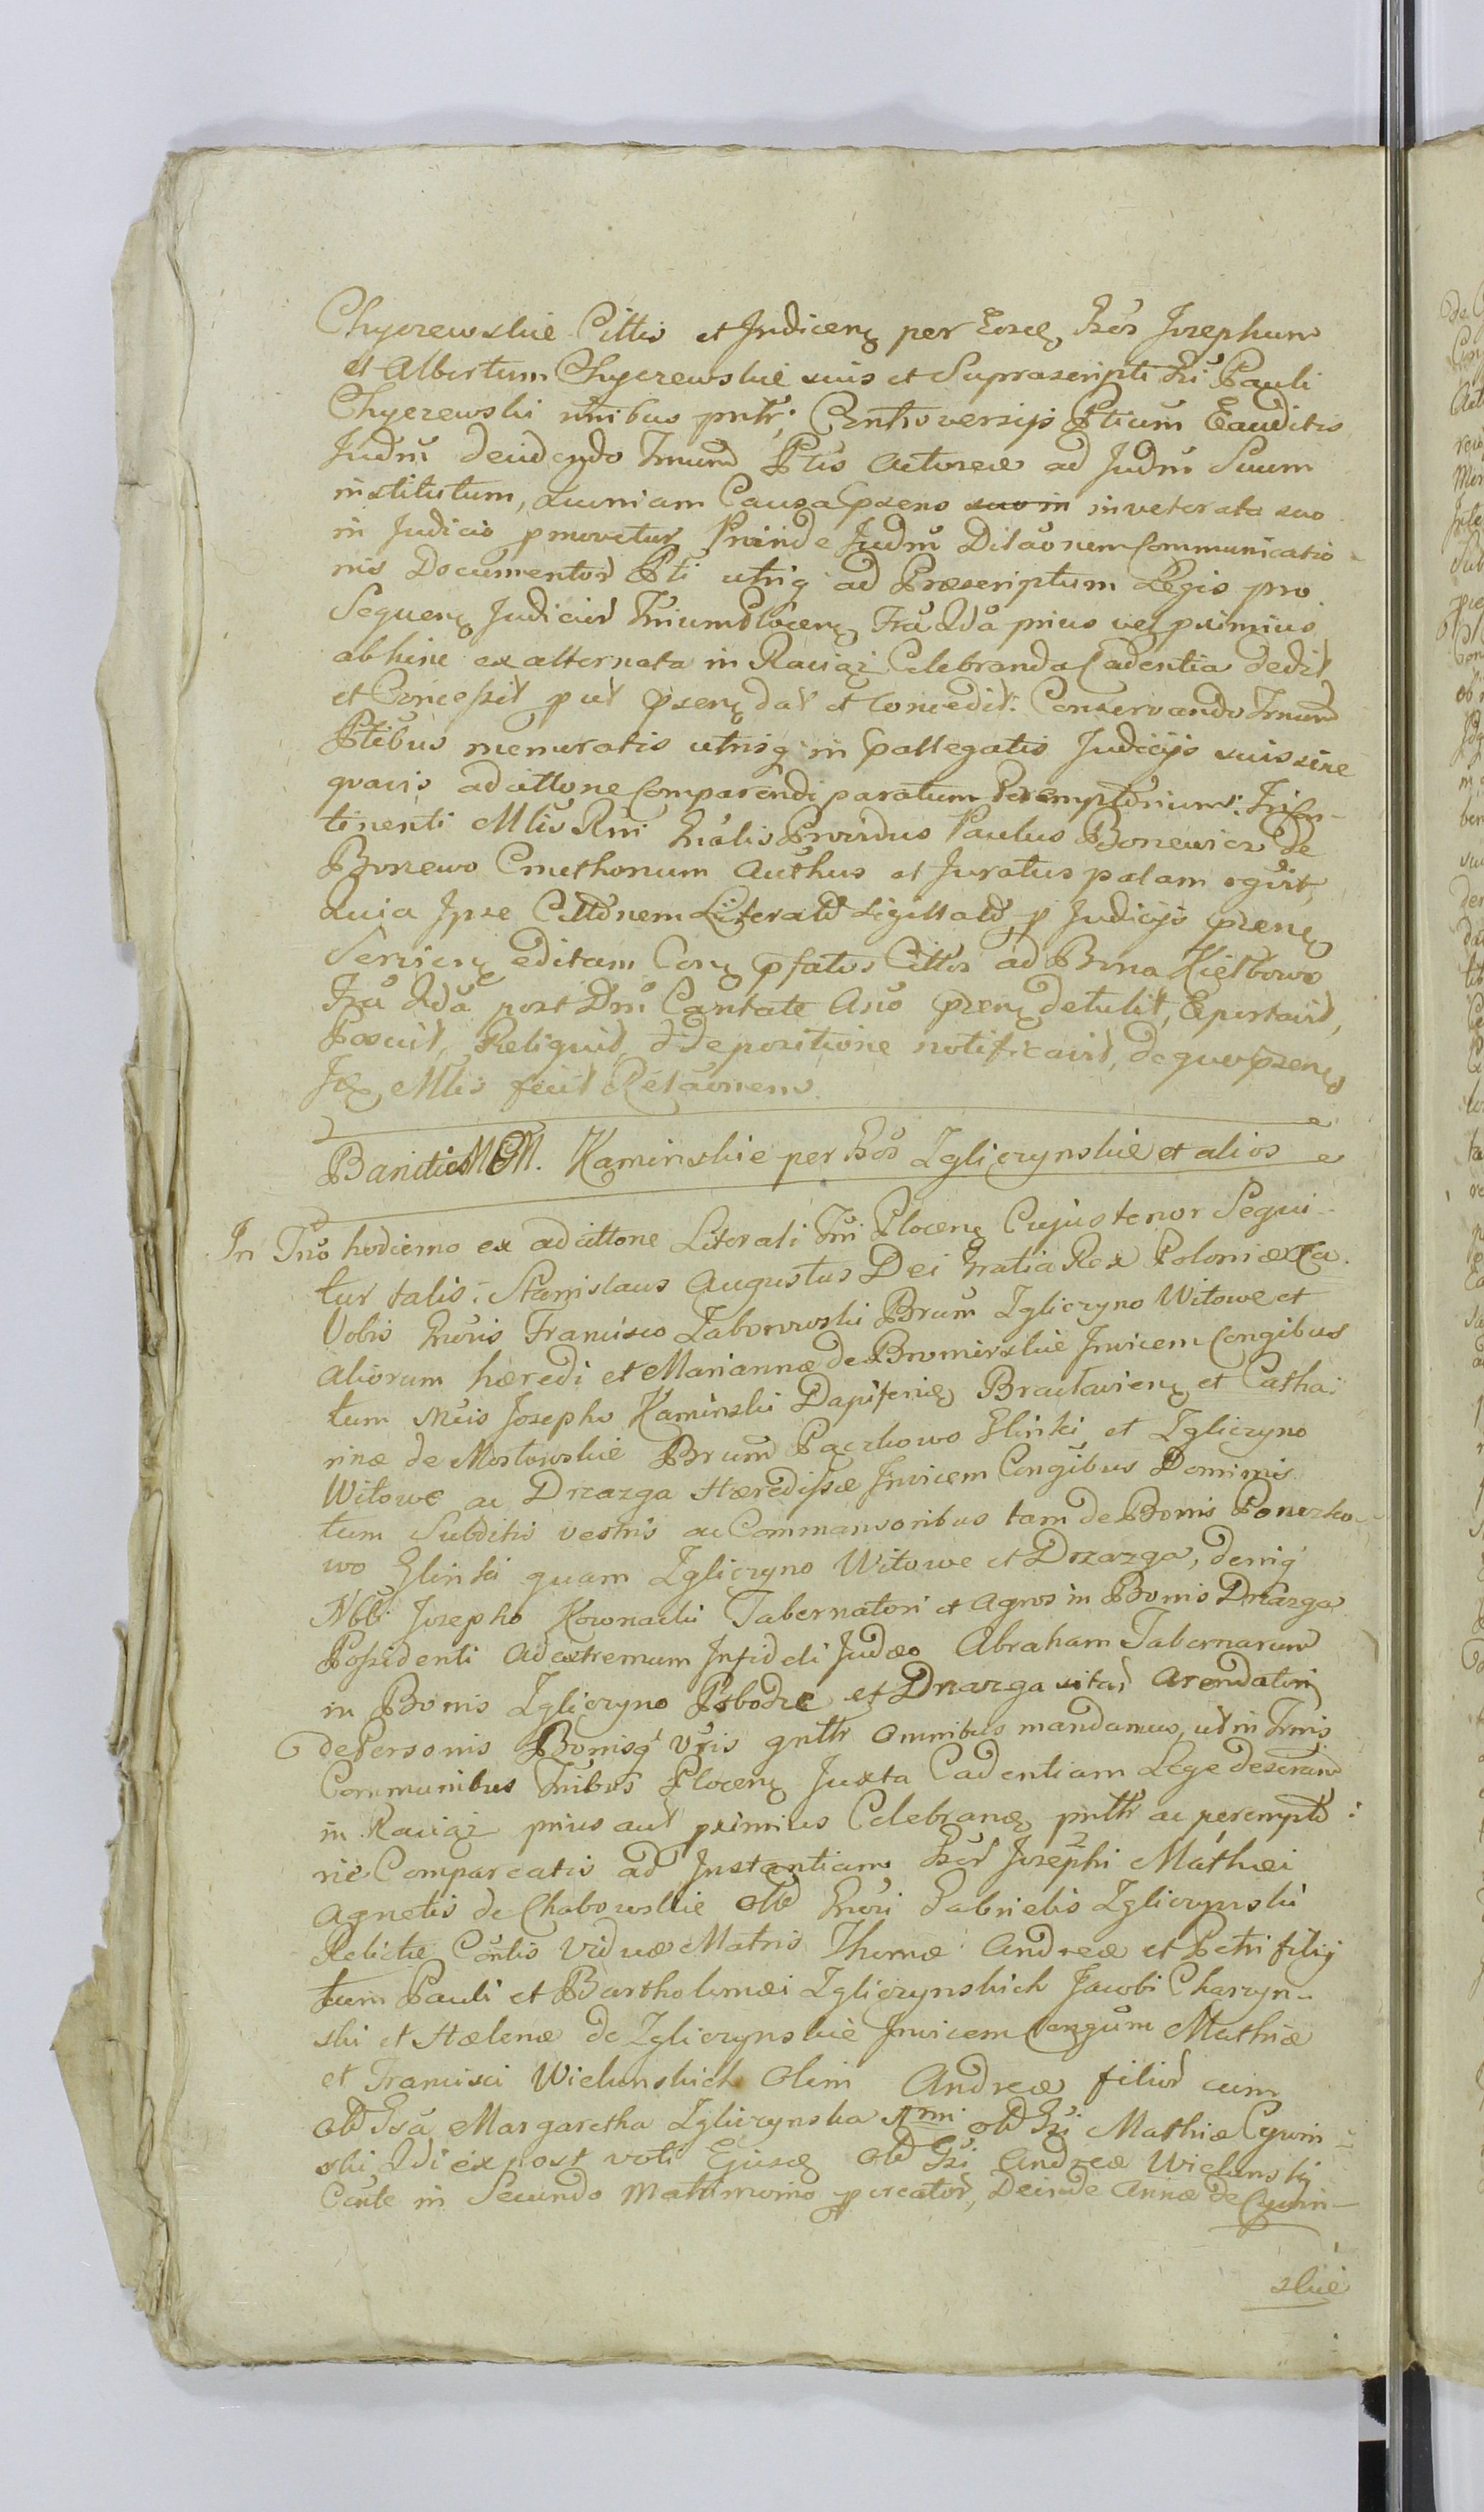 Chyczewskie Cittis et Judicenꝫ per Eosdꝫ Gsōs Josephum
et Albertum Chyczewskie suis et Suprascripti Gsi Pauli
Chyczewski nn̄ibus pntr̄; Controversijs Ptium Exauditis
Judm̄ deuidendo Tmum Ptis Actoreæ ad Judm̄ Suum
institutum, quoniam Causa pñens suo in inveterata suo
in Judicio pmovetur Proinde Judm̄ Dilaōnem Communicatio-
nis Documentor̄ Pti utriqꝫ ad Præscriptum Legis pro
Sequenꝫ Judicior̄ Tr̄rium Plocenꝫ Fr̄a 2da prius vel pximius
abhinc ex alternata in Raciąż Celebranda Cadentia dedit
et Concessit put pñenꝫ dat et Concedit: Conservando Tmum
Ptibus memoratis utrisqꝫ in pallegatis Judicijs suis sine
quavis adcittone Comparendi paratum Peremptorium: In Con-
tinenti Mlis Rni Gnalis Providus Paulus Bonewicz de
Bonewo Cmethonum Authus et Juratus palam rgvit,
Quia Ipse Cittōnem Literalē Sigillatā p Judicijs pñenꝫ
Servienꝫ editam Conꝫ pfatos Cittos ad Bona Kiełbowo
Fr̄a 2da post Dnī Cantate Ano pñenꝫ detulit, Exportavit,
Posuit, Reliquit, d depositione notificavit, de quo pñenꝫ
Jꝫ Mlis fecit Relāonem.
Banitio MGM. Kaminskie per Gsos Zgliczynskie et alios
In Trō hodierno ex adcittone Literali Tr̄ri Plocenꝫ Cujus tenor Sequi-
tur talis: Stanislaus Augustus Dei Gratia Rex Poloniæ &ca.
Vobis Gnōsis Francisco Zaborowski Br̄um Zgliczyno Witowe et
aliorum hæredi et Mariannæ de Bromirskie Invicem Congibus
tum Mcis Josepho Kaminski Dapiferidꝫ Bracłavienꝫ et Catha-
rinæ de Mostowskie Br̄um Pączkowo Glinki et Zgliczyno
Witowe ac Drzazga Hæredissæ Invicem Congibus Dominis
tum Subditis vestris ac Commansoribus tam de Bonis Ponczko-
wo Glinki quam Zgliczyno Witowe et Drzazga, deniqꝫ
Nbbi Josepho Kownacki Tabernatori et Agros in Bonis Drzazga
Possidenti Ad extremum Infideli Judæo Abraham Tabernarum
in Bonis Zgliczyno Pobodze et Drzazga sitar̄ Arendatori
de Personis Bonisqꝫ vr̄is gnltr omnibus mandamus, ut in Tr̄mis
Communibus Tr̄ribus Plocenꝫ Juxta Cadentiam Lege descriptam
in Raciąż prius aut pximius Celebranꝫ pnltr ac perempto-
rie Compareatis ad Instantiam Gsor̄ Josephi Mathæi
Agnetis de Chabowskie olim Gnōsi Gabrielis Zgliczynski
Relictæ Cōrtis Viduæ Matris Thomæ Andreæ et Petri filij
tum Pauli et Bartholomæi Zgliczynskich Jacobi Charzyn-
ski et Hælenæ de Zgliczynskie Invicem Congum Mathiæ
et Francisci Wielunskich olim Andreæ filior̄ cum
olim Gsa Margaretha Zgliczynska Armi olim Gsi Mathiæ Cywin-
ski 2di ex post voti Ejusdꝫ olim Gsi Andreæ Wielunskij
Cōrte in Secundo Matrimonio pcreator̄, Deinde Annæ de Cywin-
skie